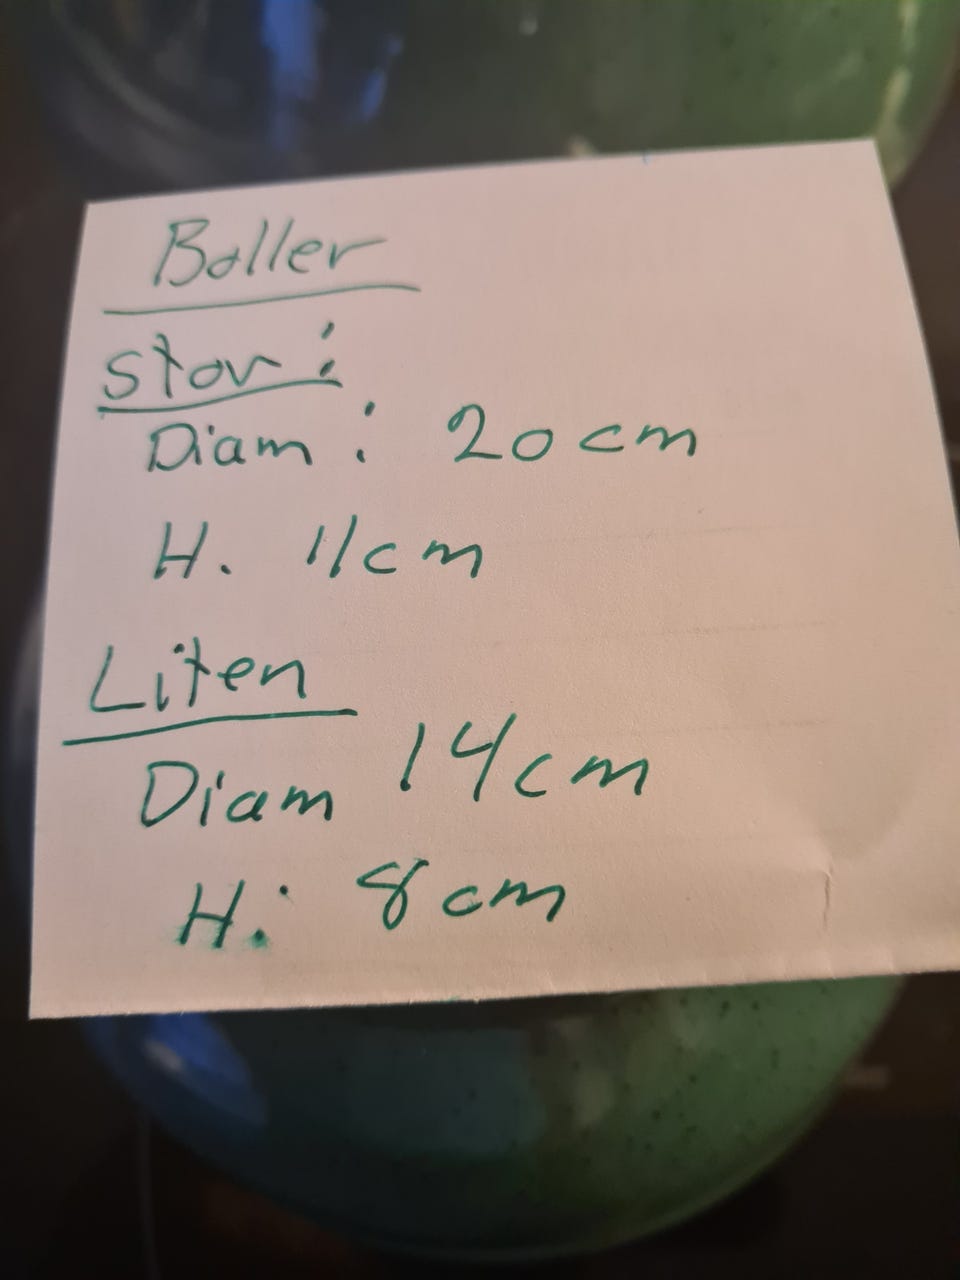 Boller
Stor:
Diam: 20 cm
H. 11cm
Liten
Diam 14cm
H: 8 cm